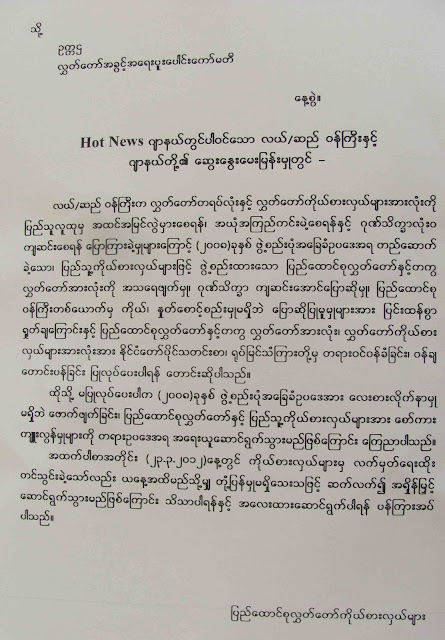 သို့
ဥက္ကဋ္ဌ
လွှတ်တော်အခွင့်အရေးပူးပေါင်းကော်မတီ
နေ့စွဲ။
Hot News ဂျာနယ်တွင်ပါဝင်သော လယ်/ဆည် ဝန်ကြီးနှင့်
ဂျာနယ်တို့၏ ဆွေးနွေးပေးမြန်းမှုတွင် –
လယ်/ဆည် ဝန်ကြီးက လွှတ်တော်တရပ်လုံးနှင့် လွှတ်တော်ကိုယ်စားလှယ်များအားလုံးကို
ပြည်သူလူထုမှ အထင်အမြင်လွဲမှားစေရန်၊ အယုံအကြည်ကင်းမဲ့စေရန်နှင့် ဂုဏ်သိက္ခာလုံးဝ
ကျဆင်းစေရန် ပြောကြားခဲ့မှုများကြောင့် (၂၀၀၈)ခုနှစ် ဖွဲ့စည်းပုံအခြေခံဥပဒေအရ တည်ဆောက်
ခဲ့သော၊ ပြည်သူ့ကိုယ်စားလှယ်များဖြင့် ဖွဲ့စည်းထားသော ပြည်ထောင်စုလွှတ်တော်နှင့်တကွ
လွှတ်တော်အားလုံးကို အသရေဖျက်မှု၊ ဂုဏ်သိက္ခာ ကျဆင်းအောင်ပြောဆိုမှု၊ ပြည်ထောင်စု
ဝန်ကြီးတစ်ယောက်မှ ကိုယ်၊ နှုတ်စောင့်စည်းမှုမရှိဘဲ ပြောဆိုပြုမူမှုများအား ပြင်းထန်စွာ
ရှုတ်ချကြောင်းနှင့် ပြည်ထောင်စုလွှတ်တော်နှင့်တကွ လွှတ်တော်အားလုံး၊ လွှတ်တော်ကိုယ်စား
လှယ်များအားလုံးအား နိုင်ငံတော်ပိုင်သတင်းစာ၊ ရုပ်မြင်သံကြားတို့မှ တရားဝင်ဝန်ခံခြင်း၊ ဝန်ချ
တောင်းပန်ခြင်း ပြုလုပ်ပေးပါရန် တောင်းဆိုပါသည်။
ထိုသို့ မပြုလုပ်ပေးပါက (၂၀၀၈)ခုနှစ် ဖွဲ့စည်းပုံအခြေခံဥပဒေအား လေးစားလိုက်နာမှု
မရှိဘဲ ဖောက်ဖျက်ခြင်း၊ ပြည်ထောင်စုလွှတ်တော်နှင့် ပြည်သူ့ကိုယ်စားလှယ်များအား စော်ကား
ကျူးလွန်မှုများကို တရားဥပဒေအရ အရေးယူဆောင်ရွက်သွားမည်ဖြစ်ကြောင်း ကြေညာပါသည်။
အထက်ပါစာအတိုင်း (၂၃.၃.၂၀၁၂)နေ့တွင် ကိုယ်စားလှယ်များမှ လက်မှတ်ရေးထိုး
တင်သွင်းခဲ့သော်လည်း ယနေ့အထိမည်သို့မျှ တုံ့ပြန်မှုမရှိသေးသဖြင့် ဆက်လက်၍ အရှိန်မြှင့်
ဆောင်ရွက်သွားမည်ဖြစ်ကြောင်း သိသာပါရန်နှင့် အလေးထားဆောင်ရွက်ပါရန် ပန်ကြားအပ်
ပါသည်။
ပြည်ထောင်စုလွှတ်တော်ကိုယ်စားလှယ်များ